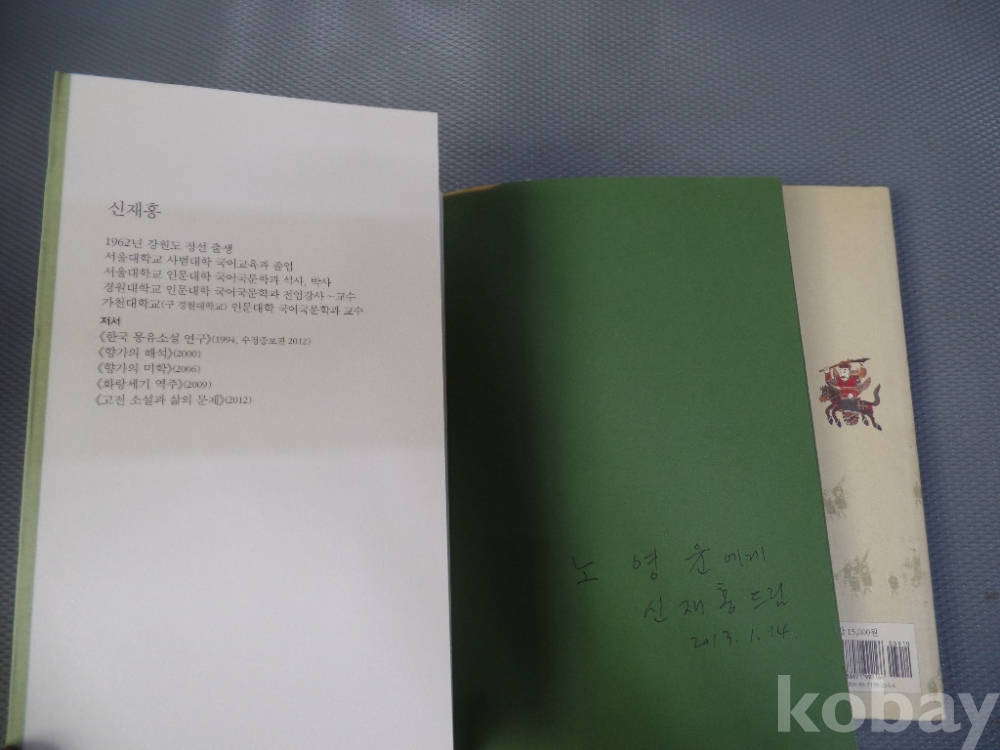 신재홍
1962년 강원도 정선 출생
서울대학교 사범대학 국어교육과 졸업
서울대학교 인문대학 국어국문학과 석사, 박사
경원대학교 인문대학 국어국문학과 전임강사~교수
가천대학교(구 경원대학교) 인문대학 국어국문학과 교수
저서
《한국 몽유소설 연구》(1994, 수정증보판 2012)
《향가의 해석》(2000)
《향가의 미학》(2006)
《화랑세기 역주》(2009)
《고전 소설과 삶의 문제》(2012)
노영윤에게
신재홍 드림
2013. 1. 14.
값 15,000원
kobay